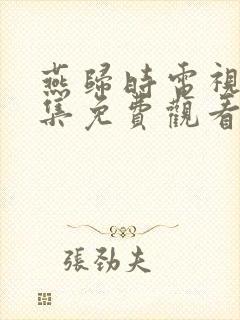 燕歸時電視
集免費觀看
張勁夫